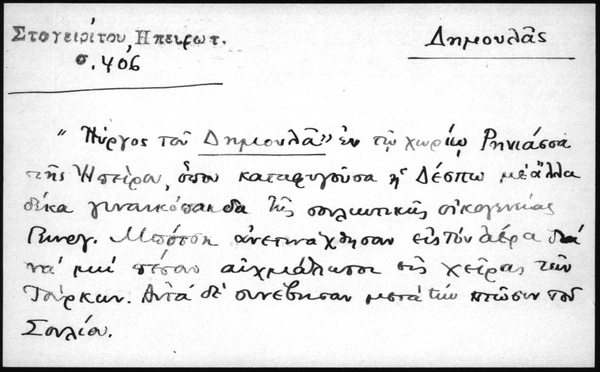 Στογειρίτου, Ηπειρωτ.
σ. 406
Δημουλᾶς
"Πύργος τοῦ Δημουλᾶ" ἐν τῷ χωρίῳ Ρηνιάσσα
τῆς Ἠπείρου, ὅπου καταφυγοῦσα ἡ Δέσπω μὲ ἄλλα
δέκα γυναικόπαιδα τῆς σουλιωτικῆς οἰκογενείας
Γεωργ. Μπότση ἀνετινάχθησαν εἰς τὸν ἀέρα διά
νά μή πέσουν αἰχμάλωτοι εἰς χεῖρας τῶν
Τούρκων. Αὐτά δέ συνέβησαν μετά τήν πτῶσιν τοῦ
Σουλίου.